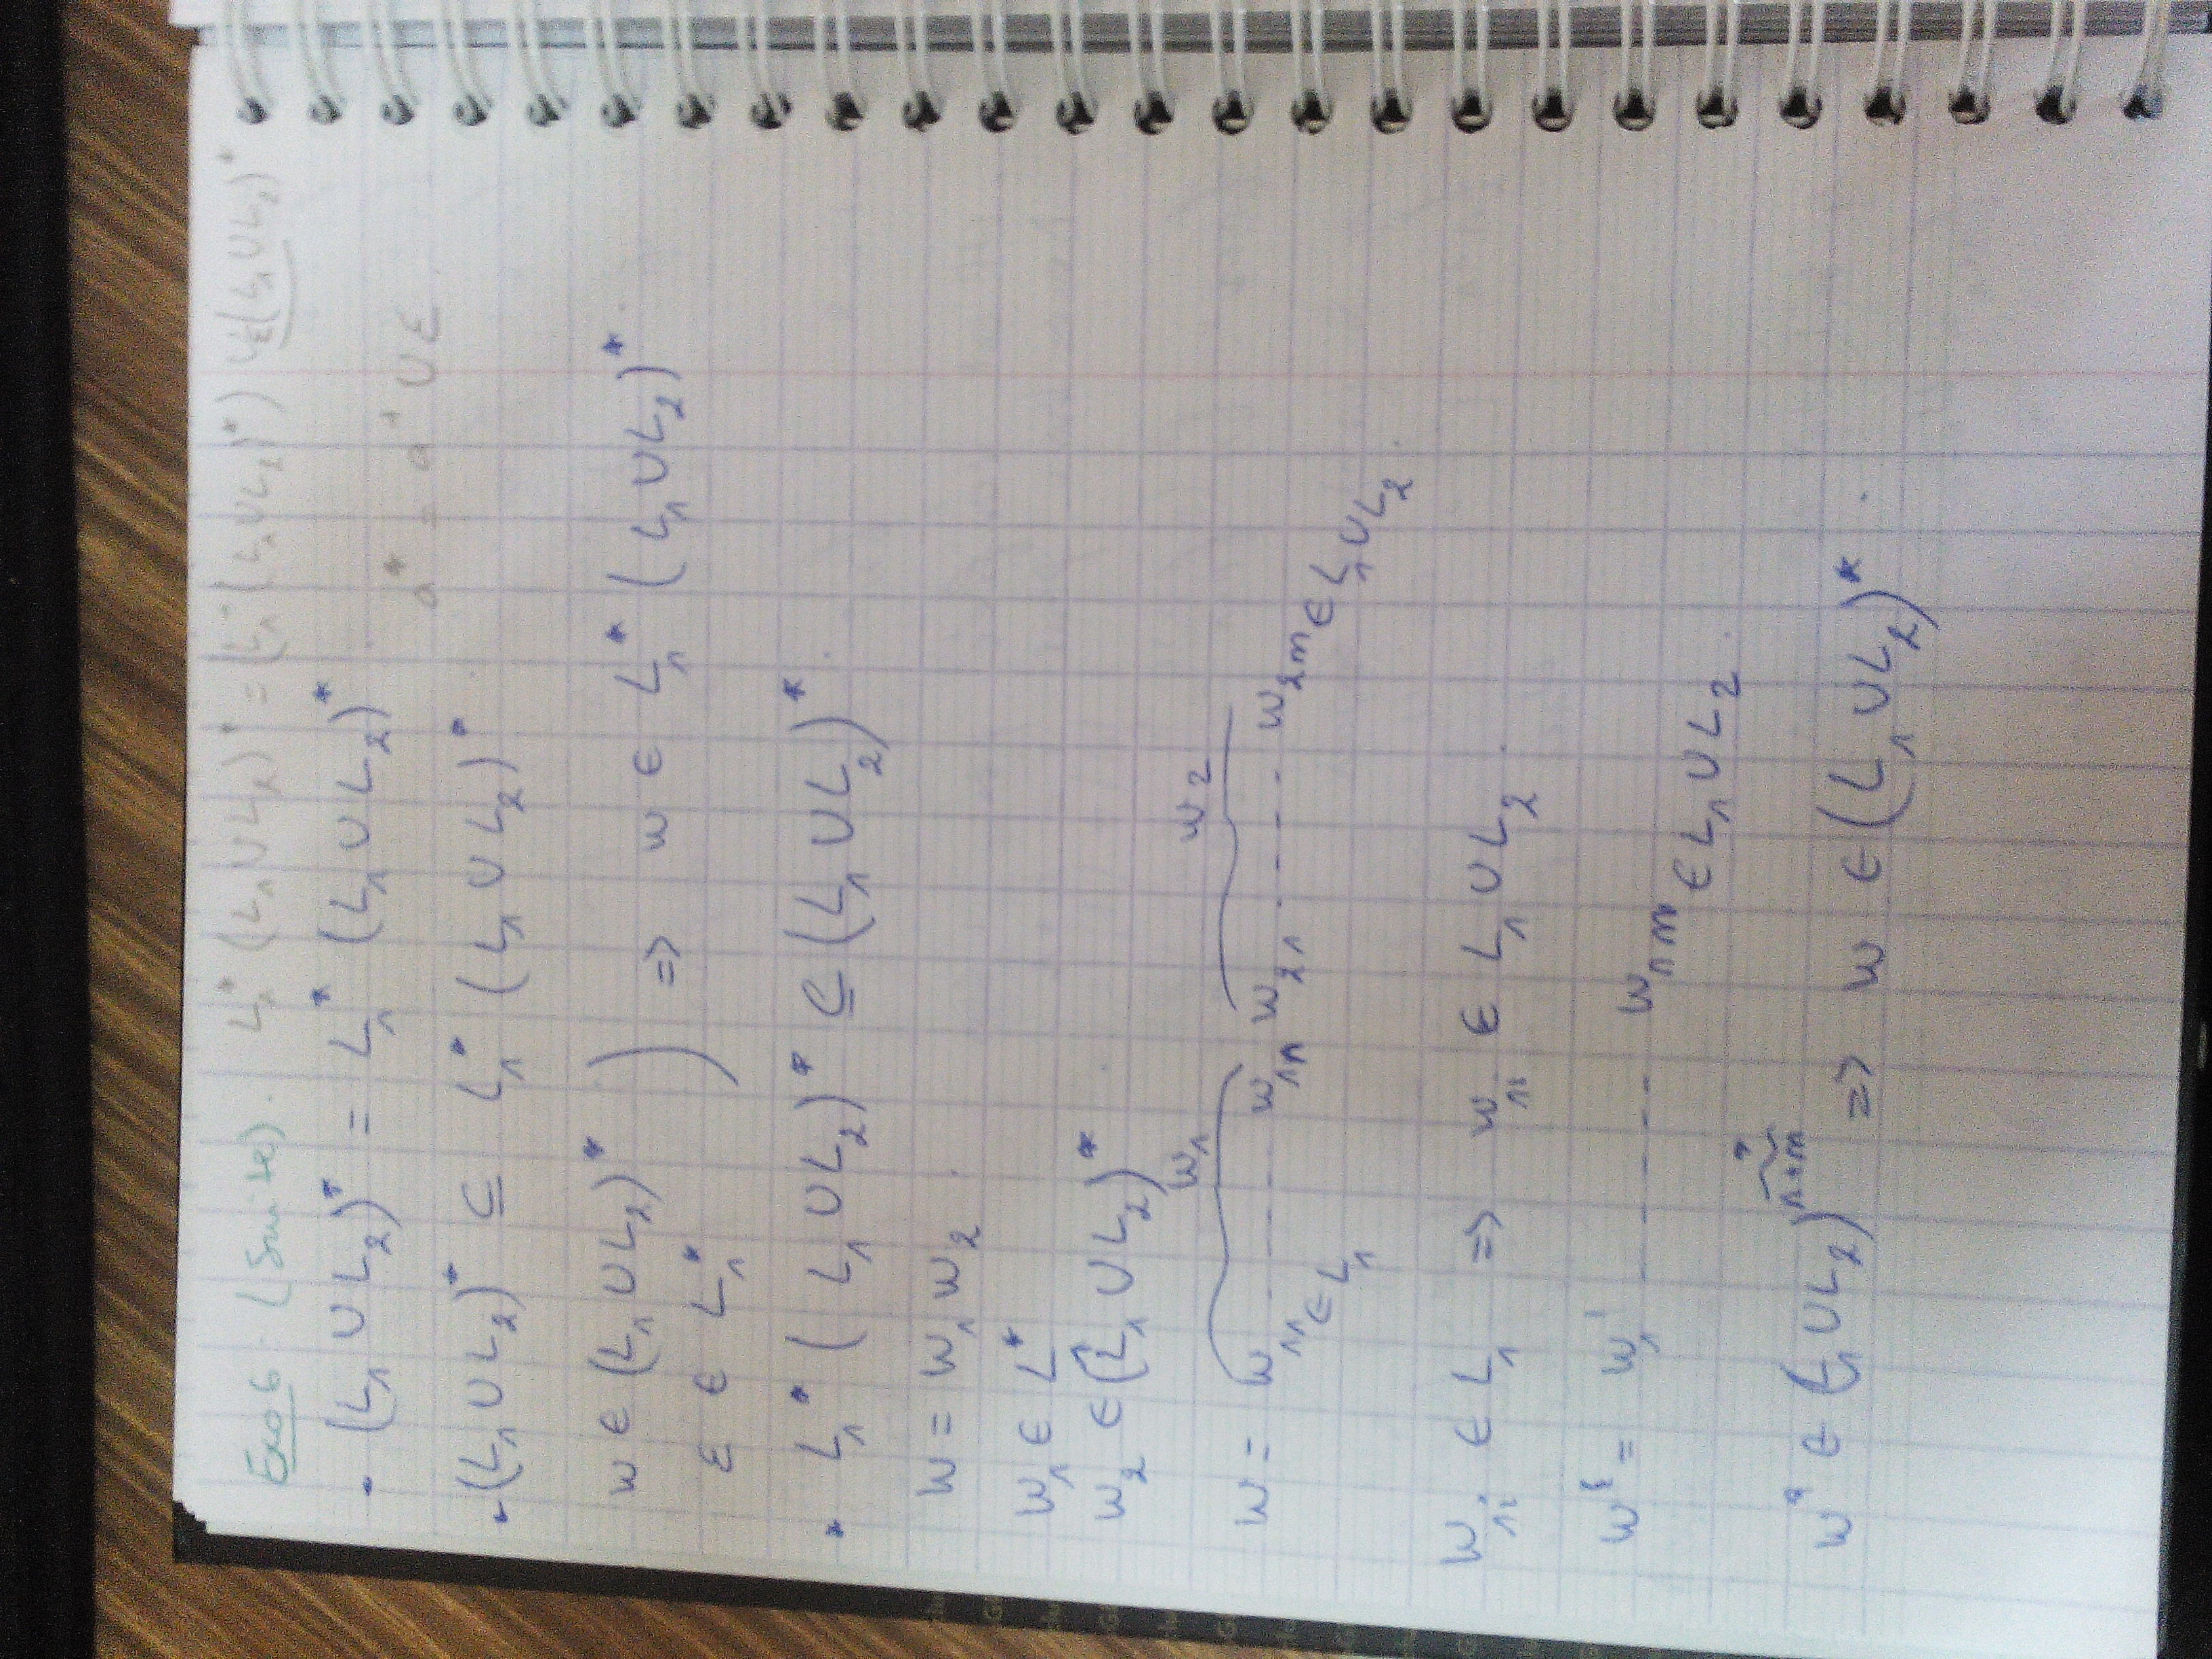 Exo 6 (Suite). L₁* (L₁ ∪ L₂)* = (L₁⁺ (L₁ ∪ L₂)*) ∪ (L₁ ∪ L₂)*
- (L₁ ∪ L₂)* = L₁* (L₁ ∪ L₂)*.
a* = a⁺ ∪ ε.
.(L₁ ∪ L₂)* ⊆ L₁* (L₁ ∪ L₂)*
w ∈ (L₁ ∪ L₂)*
ε ∈ L₁*
) => w ∈ L₁* (L₁ ∪ L₂)*
. L₁* (L₁ ∪ L₂)* ⊆ (L₁ ∪ L₂)*
w = w₁ w₂.
w₁ ∈ L₁*
w₂ ∈ (L₁ ∪ L₂)*
w₁ w₂
w = w₁₁ ------ w₁ₙ w₂₁ ----- w₂ₘ
∈ L₁ ∈ L₁ ∪ L₂.
w₁ᵢ ∈ L₁ => w₁ᵢ ∈ L₁ ∪ L₂.
w' = w₁' ------ w
∈ L₁ ∪ L₂.
w' ∈ (L₁ ∪ L₂)ⁿ⁺ᵐ => w ∈ (L₁ ∪ L₂)*.